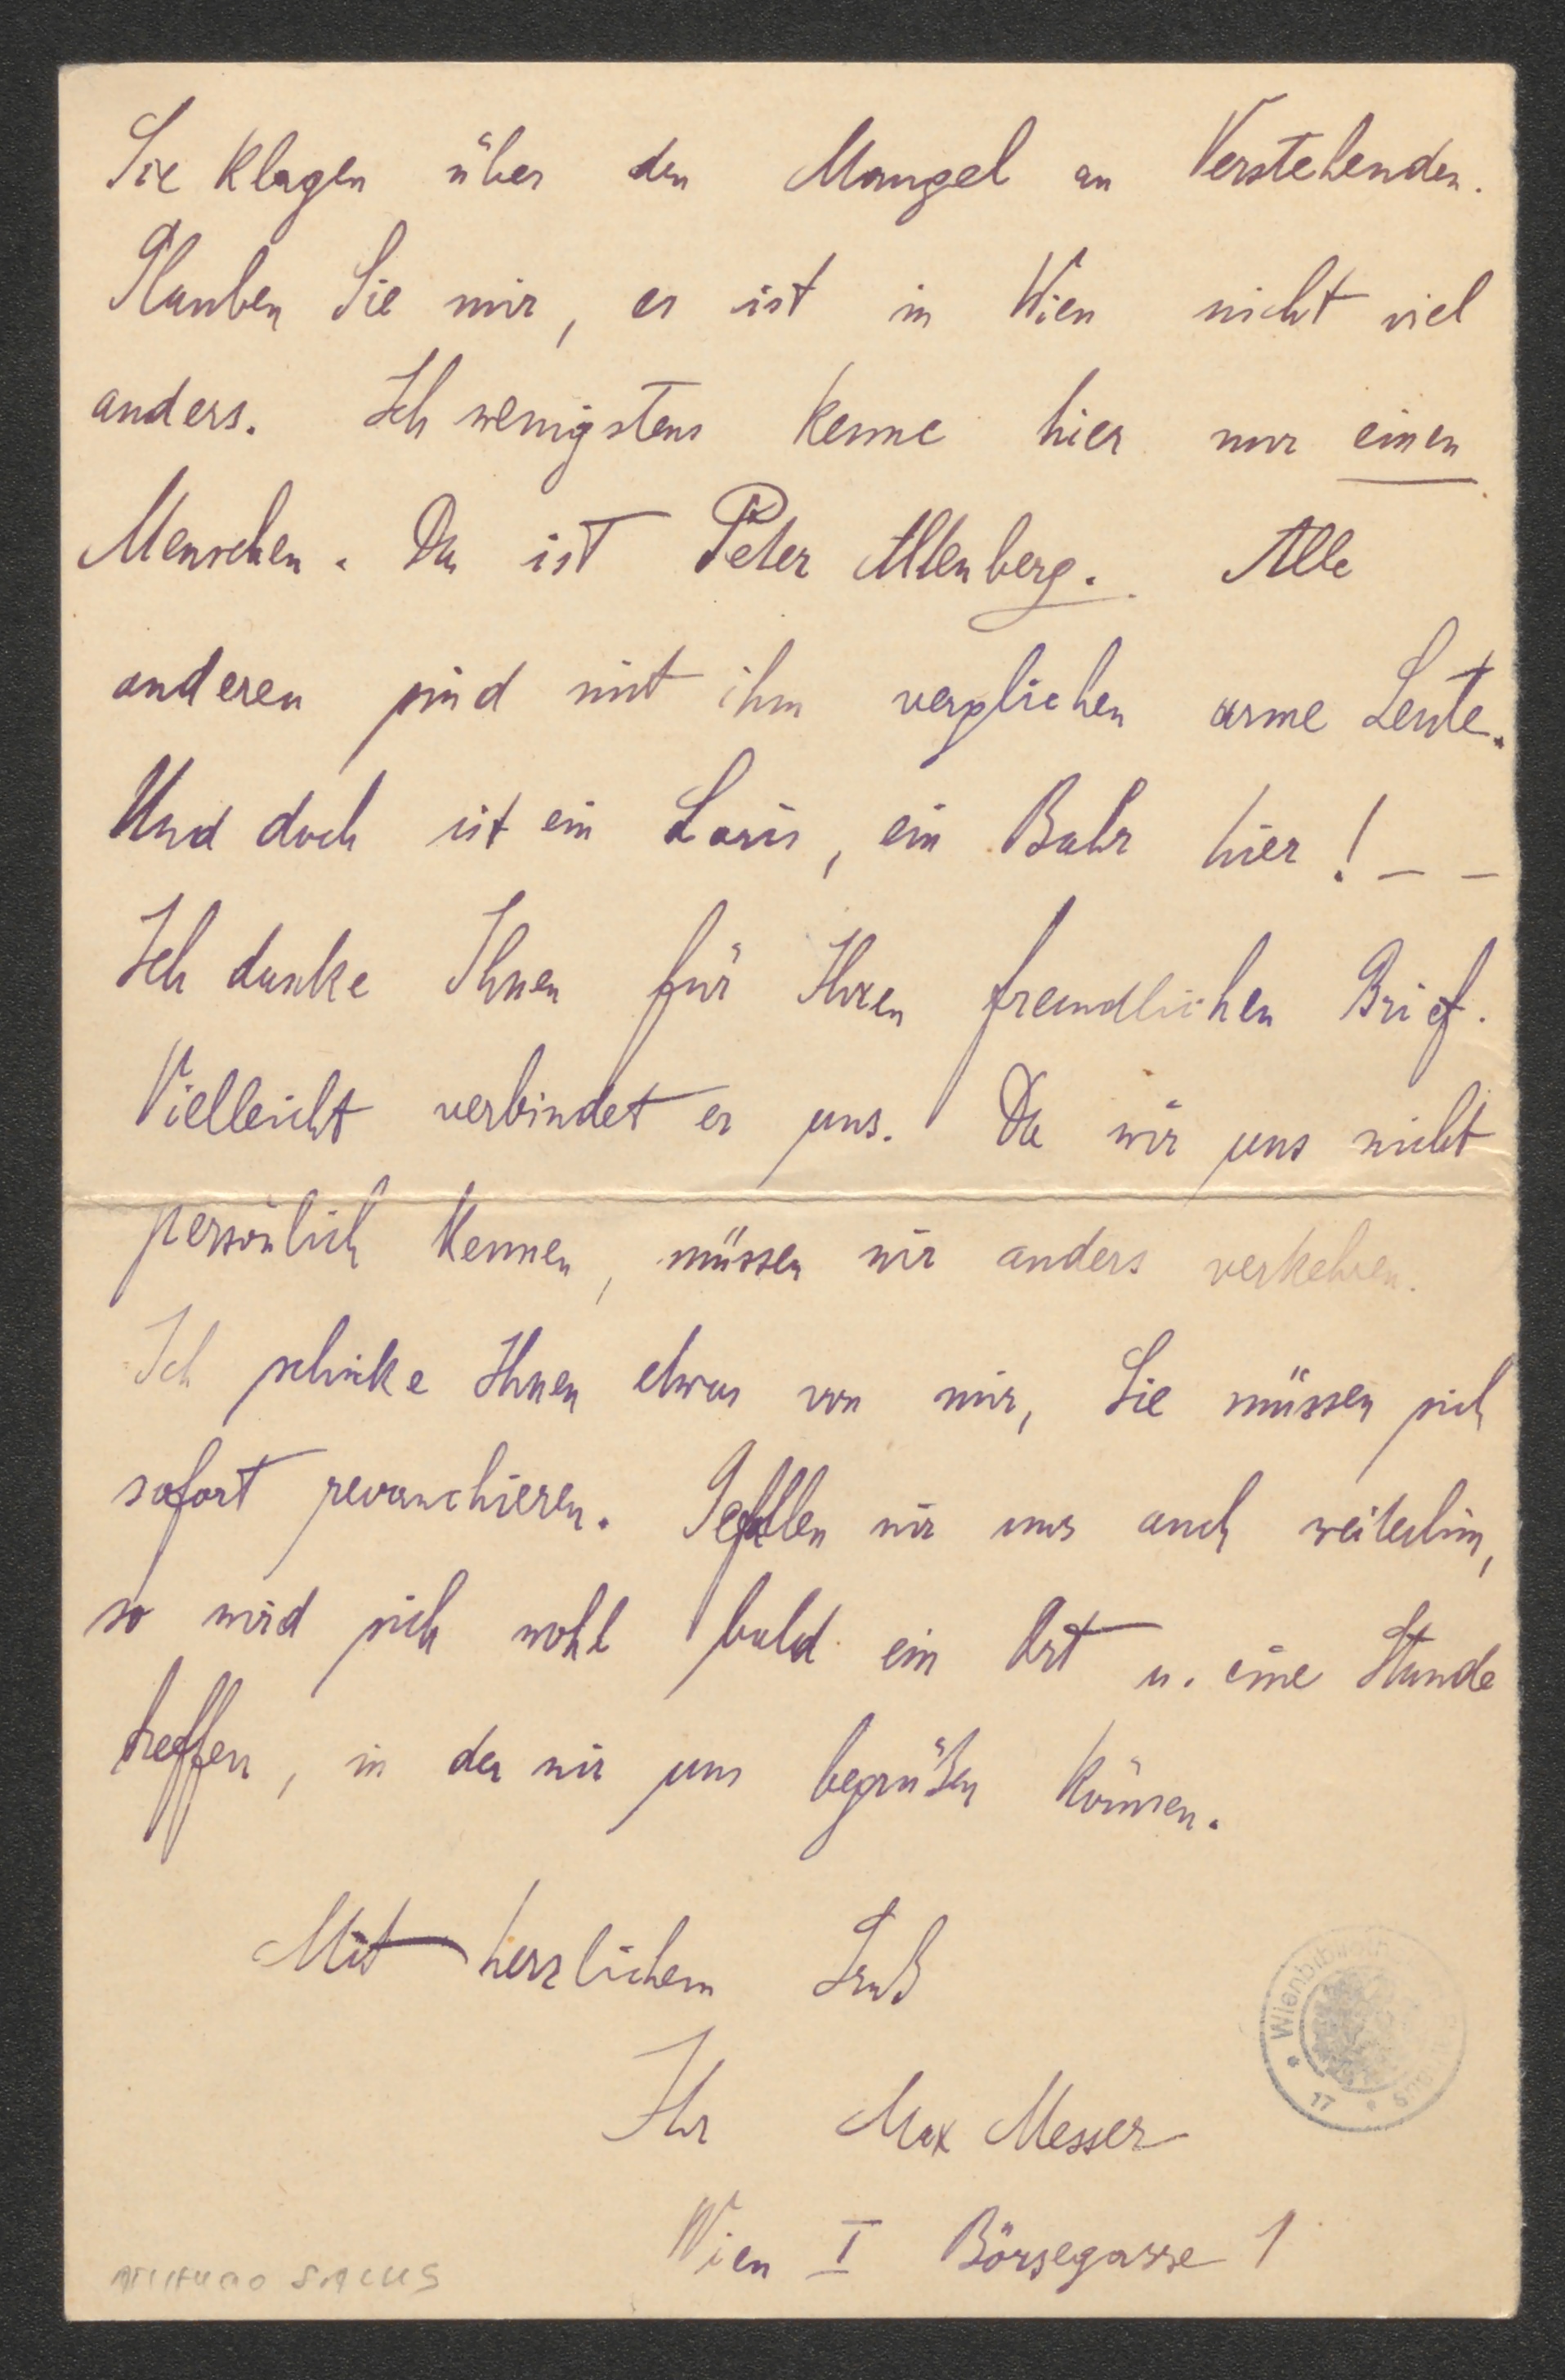 Sie klagen über den Mangel an Verstehenden.
Glauben Sie mir, es ist in Wien nicht viel
anders. Ich wenigstens kenne hier nur einen
Menschen. Da ist Peter Altenberg. Alle
anderen sind mit ihm verglichen arme Leute.
Und doch ist ein Loris, ein Bahr hier! _ _
Ich danke Ihnen für Ihren freundlichen Brief.
Vielleicht verbindet er uns. Da wir uns nicht
persönlich kennen, müssen wir anders verkehren.
Ich schicke Ihnen etwas von mir, Sie müssen sich
sofort revanchieren. Gefallen wir uns auch weiterhin,
so wird sich wohl bald ein Ort u. eine Stunde
treffen, in der wir uns begrüßen können.
Mit herzlichem Gruß
Ihr Max Messer
Wien I Börsegasse 1
Wienbibliothek
17
SALUS